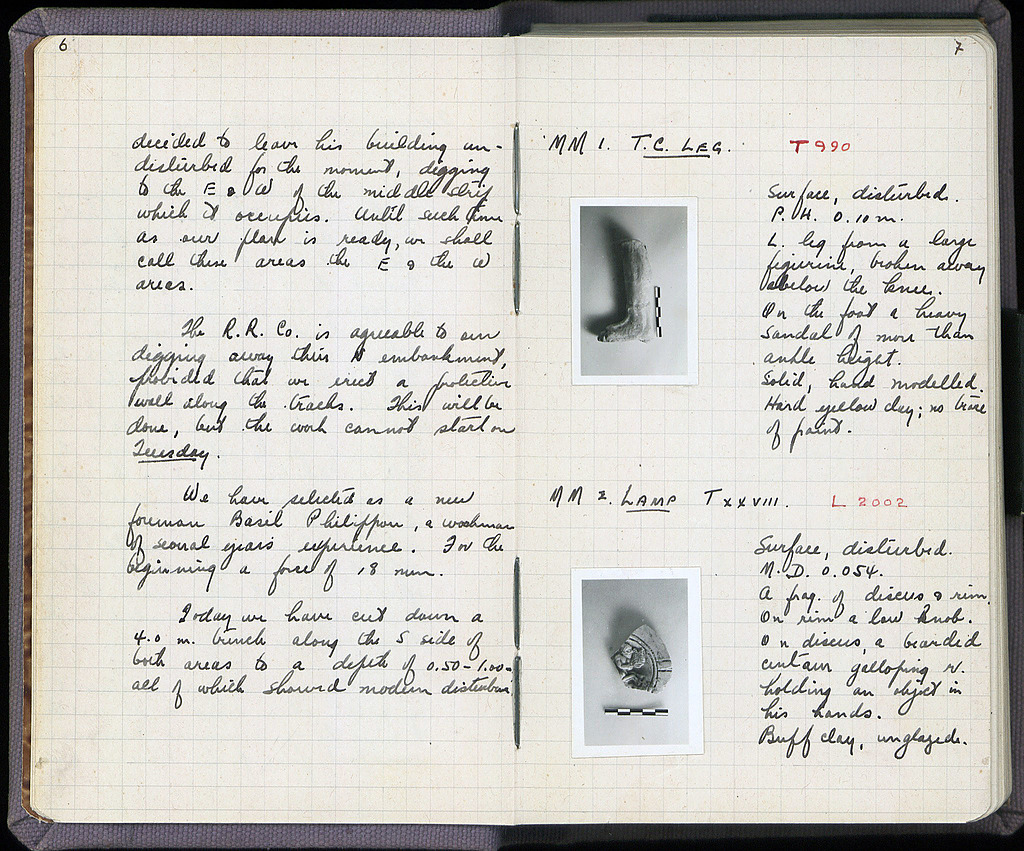 6
decided to leave his building un-
disturbed for the moment, digging
to the E & W of the middle strip
which it occupies. Until such time
as our plan is ready, we shall
call these areas the E & the W
areas.
The R.R. Co. is agreeable to our
digging away this embankment,
provided that we erect a protective
wall along the tracks. This will be
done, but the work cannot start on
Tuesday.
We have selected as a new
foreman Basil Philippou, a workman
of several years experience. For the
beginning a force of 18 men.
Today we have cut down a
4.0 m. trench along the S side of
both areas to a depth of 0.50-1.00-
all of which showed modern disturban
7
MM 1. T.C. LEG. T 990
Surface, disturbed.
P. H. 0.10 m.
L. leg from a large
figurine, broken away
below the knee.
On the foot a heavy
sandal of more than
ankle height.
Solid, hand modelled.
Hard yellow clay; no trace
of paint.
MM 2. LAMP T XXVIII. L 2002
Surface, disturbed.
M. D. 0.054.
A frag. of discus & rim.
On rim a low knob.
On discus, a bearded
centaur galloping r.
holding an object in
his hands.
Buff clay, unglazed.